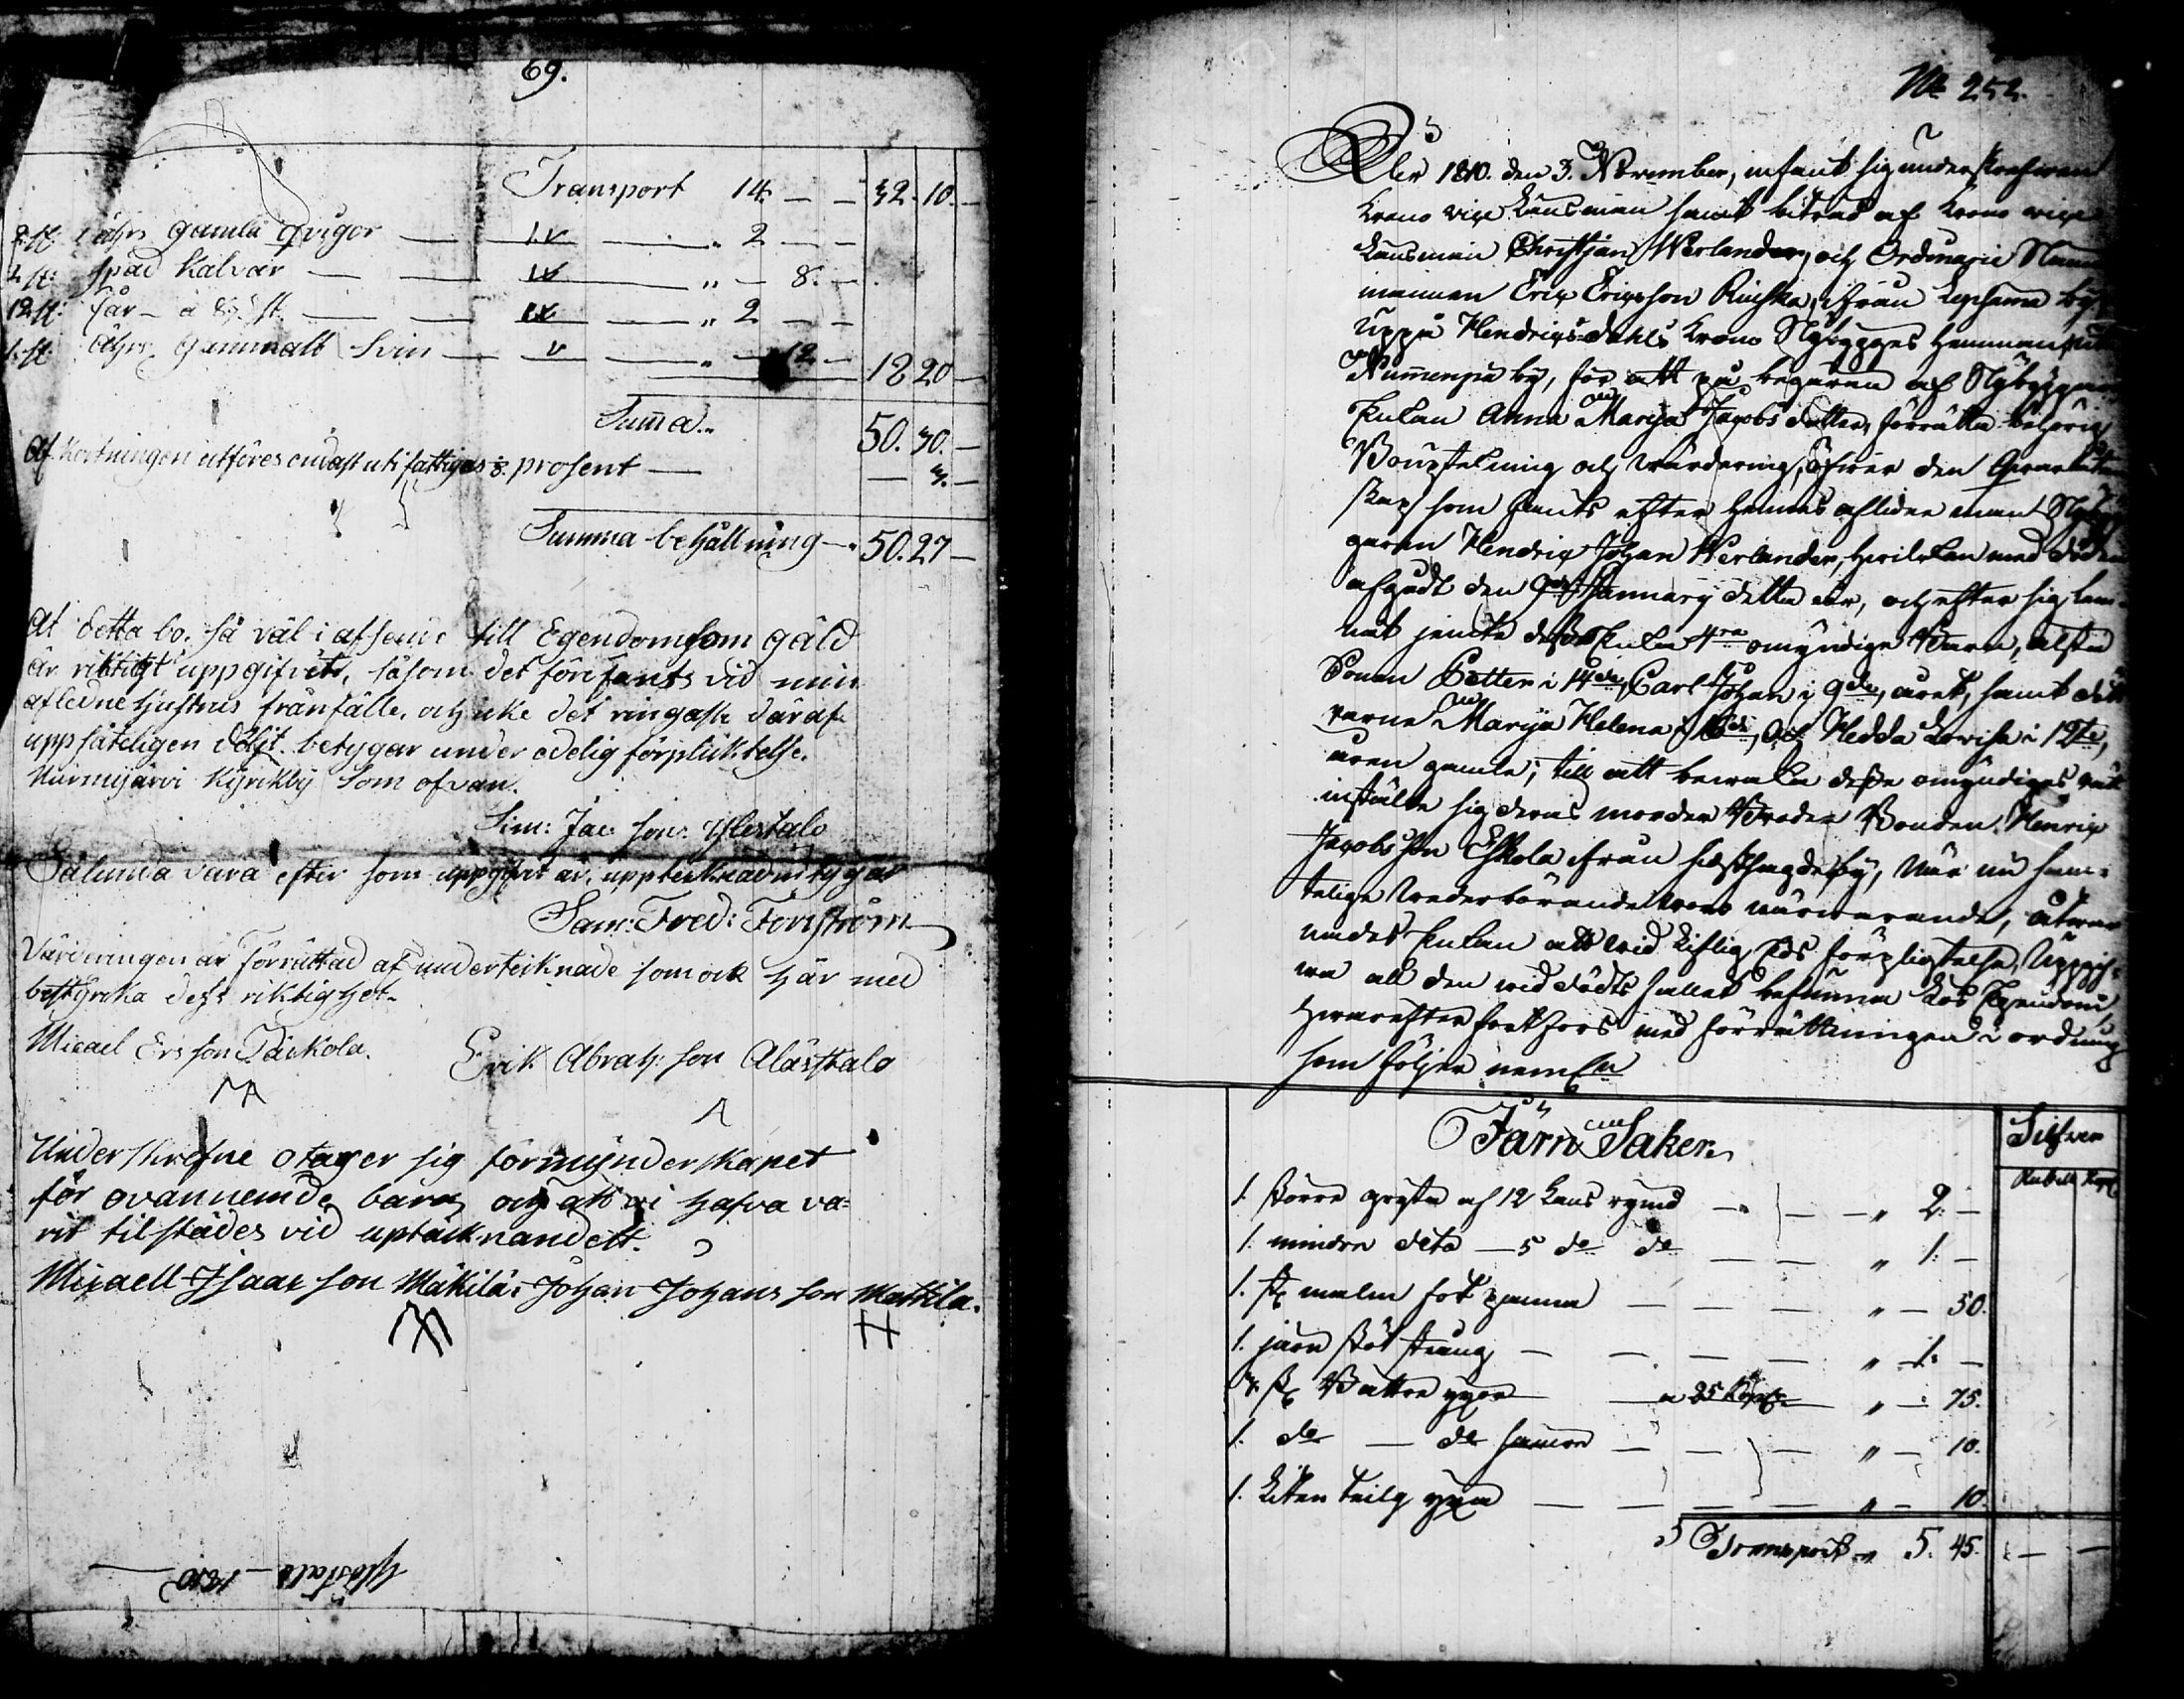 69.
Transport 14. — — 32. 10. —
2 st: åhrs gamla qvigor — 1. v — " 2 — —
2 st: späd Kalvar — — 1 v — " — 8. —
12 st: får — a — st. — — — " 2 — —
1. st: åhrs gammalt Svin — v — " — 12 — 18 20 —
Summa " 50. 30. —
Af Kortningen utföres endast uti fattigas 1/8 prosent — — 3. —
Summa behållning — " 50. 27 —
At detta bo. så väl i afseende till Egendom som gäld
är riktigt uppgifvit, såsom det förefants vid min
afledne hustrus frånfälle, och icke det ringaste däraf
uppsåteligen döljt. betygar under edelig förpliktelse.
Nurmijärvi Kyrckby som ofvan.
Sim: Jac: son: Yletalo
Sålunda vara efter som uppgifvit är, upptecknadt betygar
Sam: Fred: Forsström
Värderingen är Förrättad af undertecknade som ock här med
bestyrcka dess riktighet.
Micael Ersson Täckola. Erik Abrah: son Alästalo
Underskrefne otager sig förmynderskapet
för ovannemde barn och att vi hafva va=
rit tilstädes vid uptäcknandett.
Mixaell Isaac son Mäkilä. Johan Johans son Mattila.
Ylöstalo — 1810
No 252.
År 1810. den 3. November, infant sig underskrefven
Krono vice Länsman samt biträd af Krono vice
Länsman Christian Werlander, och Ordinarie Näm
mannen Eric Ericsson Ruiska, ifrån Lepsama by
Uppå Hendricsdahls Krono Nybygges Hemman, uti
Nummenpä by, för att på begäran af Nybygga
Enkan Anna Marija Jacobs dotter, förrätta behörig
Boupteckning och värdering, öfver den Qvarlåten
skap som fants efter hennes aflidne man Nybyg
garen Hendric Johan Werlander, hvilken med döden
afgådt den 9de Januarij detta år, och efter sig lem-
nat jemte dess Enka 4ra omyndige Barn, alsta
Sonen Petter i 14de, Carl Johan i 9de, året, samt dött
rarne Marija Helena i 16de, och Hedda Lovisa i 12te,
åren gamle; till att bevaka desse omyndiges rätt
instälde sig deras morder Broder Bonden Henric
Jacobsson Eskola ifrån by, När nu sam-
telige vederbörande voro närvarande, åtvar
nades Enkan att vid Liflig Eds förpligtelse, Uppgif-
va all den vid dödsfallet befunna Lös Egendom
Hvarefter fortfors med förrättningen i ordning
som följer neml:n
Järn Saker. Silfver
Rubell Kop:
1. större gryta af 12 Kans rymd — — — " 2: —
1. mindre dito — 5 do do — — " 1: —
1. st malm fot panna — — — — " — 50.
1. järn stöt stång — — — — " 1: —
3. st Battre yxor — a 25 Kop: — " — : 75.
1. do — do sämre — — — " — 10.
1. Liten täilg yxa — — — — " — 10
Transport " 5. 45. — —